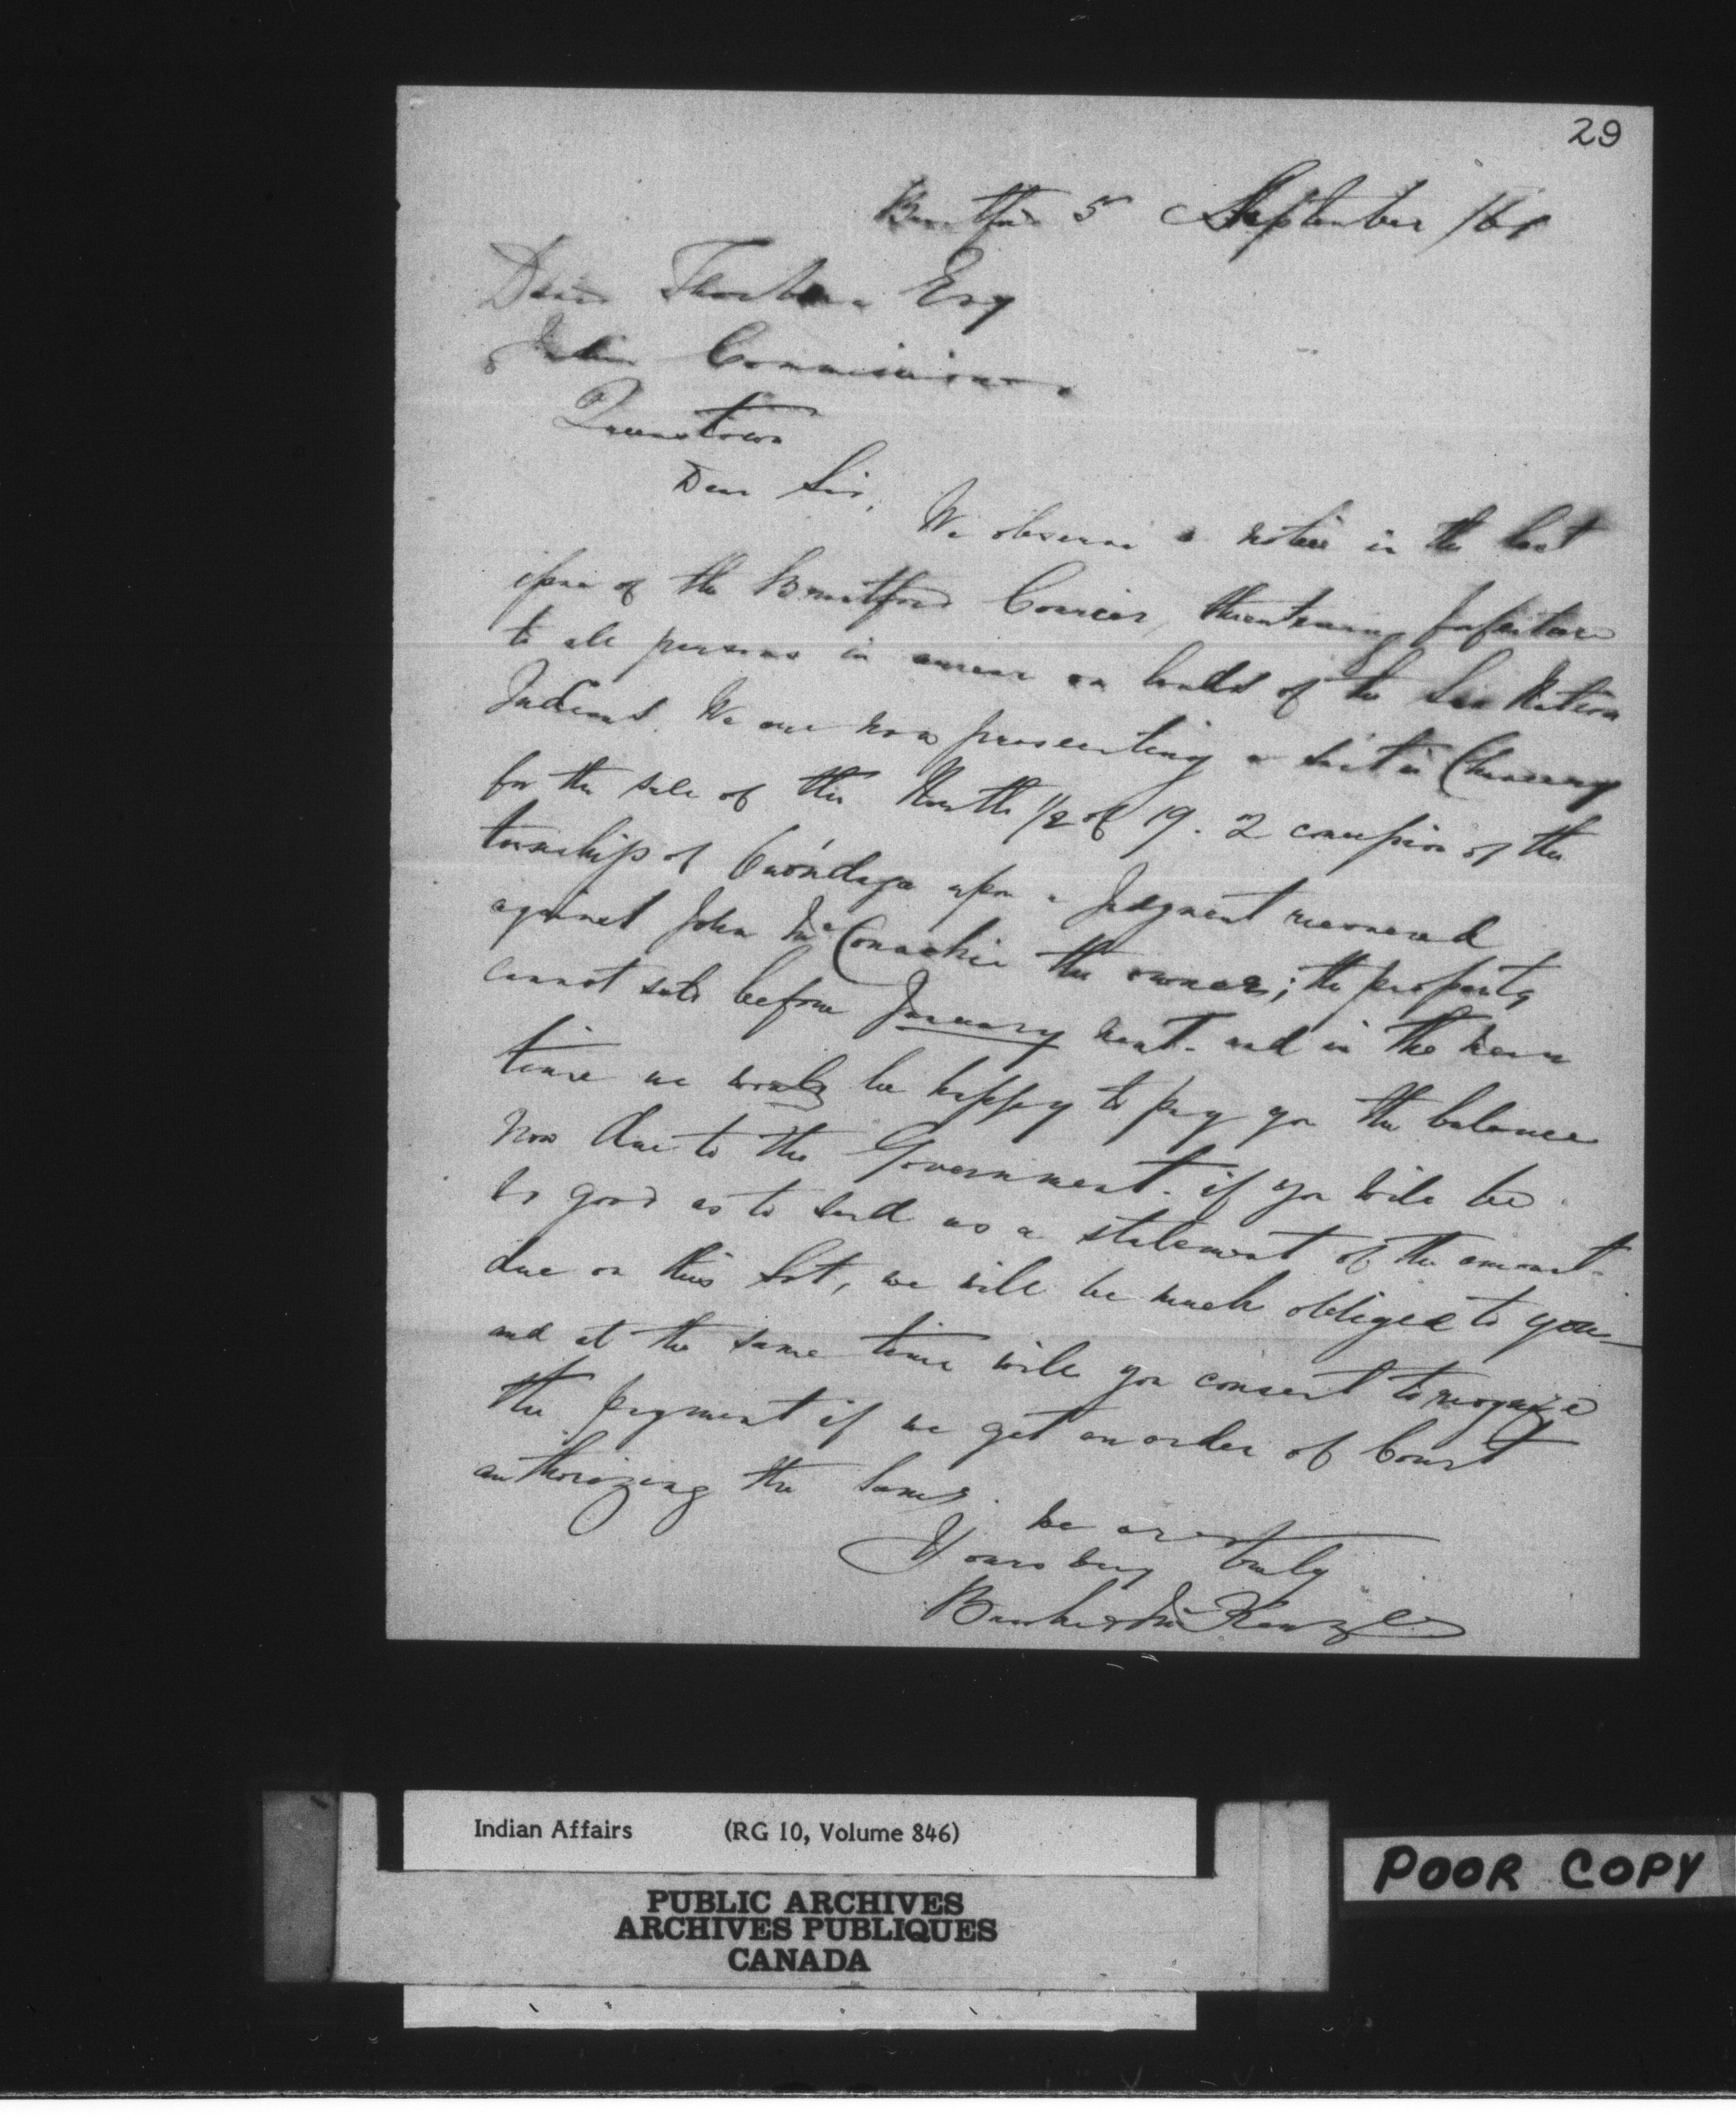 29
Brantford 5 September /61
David Thorburn Esq
Indian Commissioner
Queenstown
Dear Sir,
We observe a notice in the last
issue of the Brantford Courier, threatening forfeiture
to all persons in arrear on lands of the Six Nation
Indians. We are now prosecuting a suit in Chancery
for the sale of the North 1/2 of 19. 2 concession of the
township of Onondaga upon a Judgment recovered
against John McConachie the owner; the property
cannot sell before January next. and in the mean
time we would be happy to pay you the balance
now due to the Government. if you will be
so good as to send us a statement of the amount
due on this Lot, we will be much obliged to you
and at the same time will you consent to recognize
the payment if we get an order of Court
authorizing the same.
We are
Yours very truly
McKenzie
Indian Affairs (RG 10, Volume 846)
PUBLIC ARCHIVES
ARCHIVES PUBLIQUES
CANADA
POOR COPY